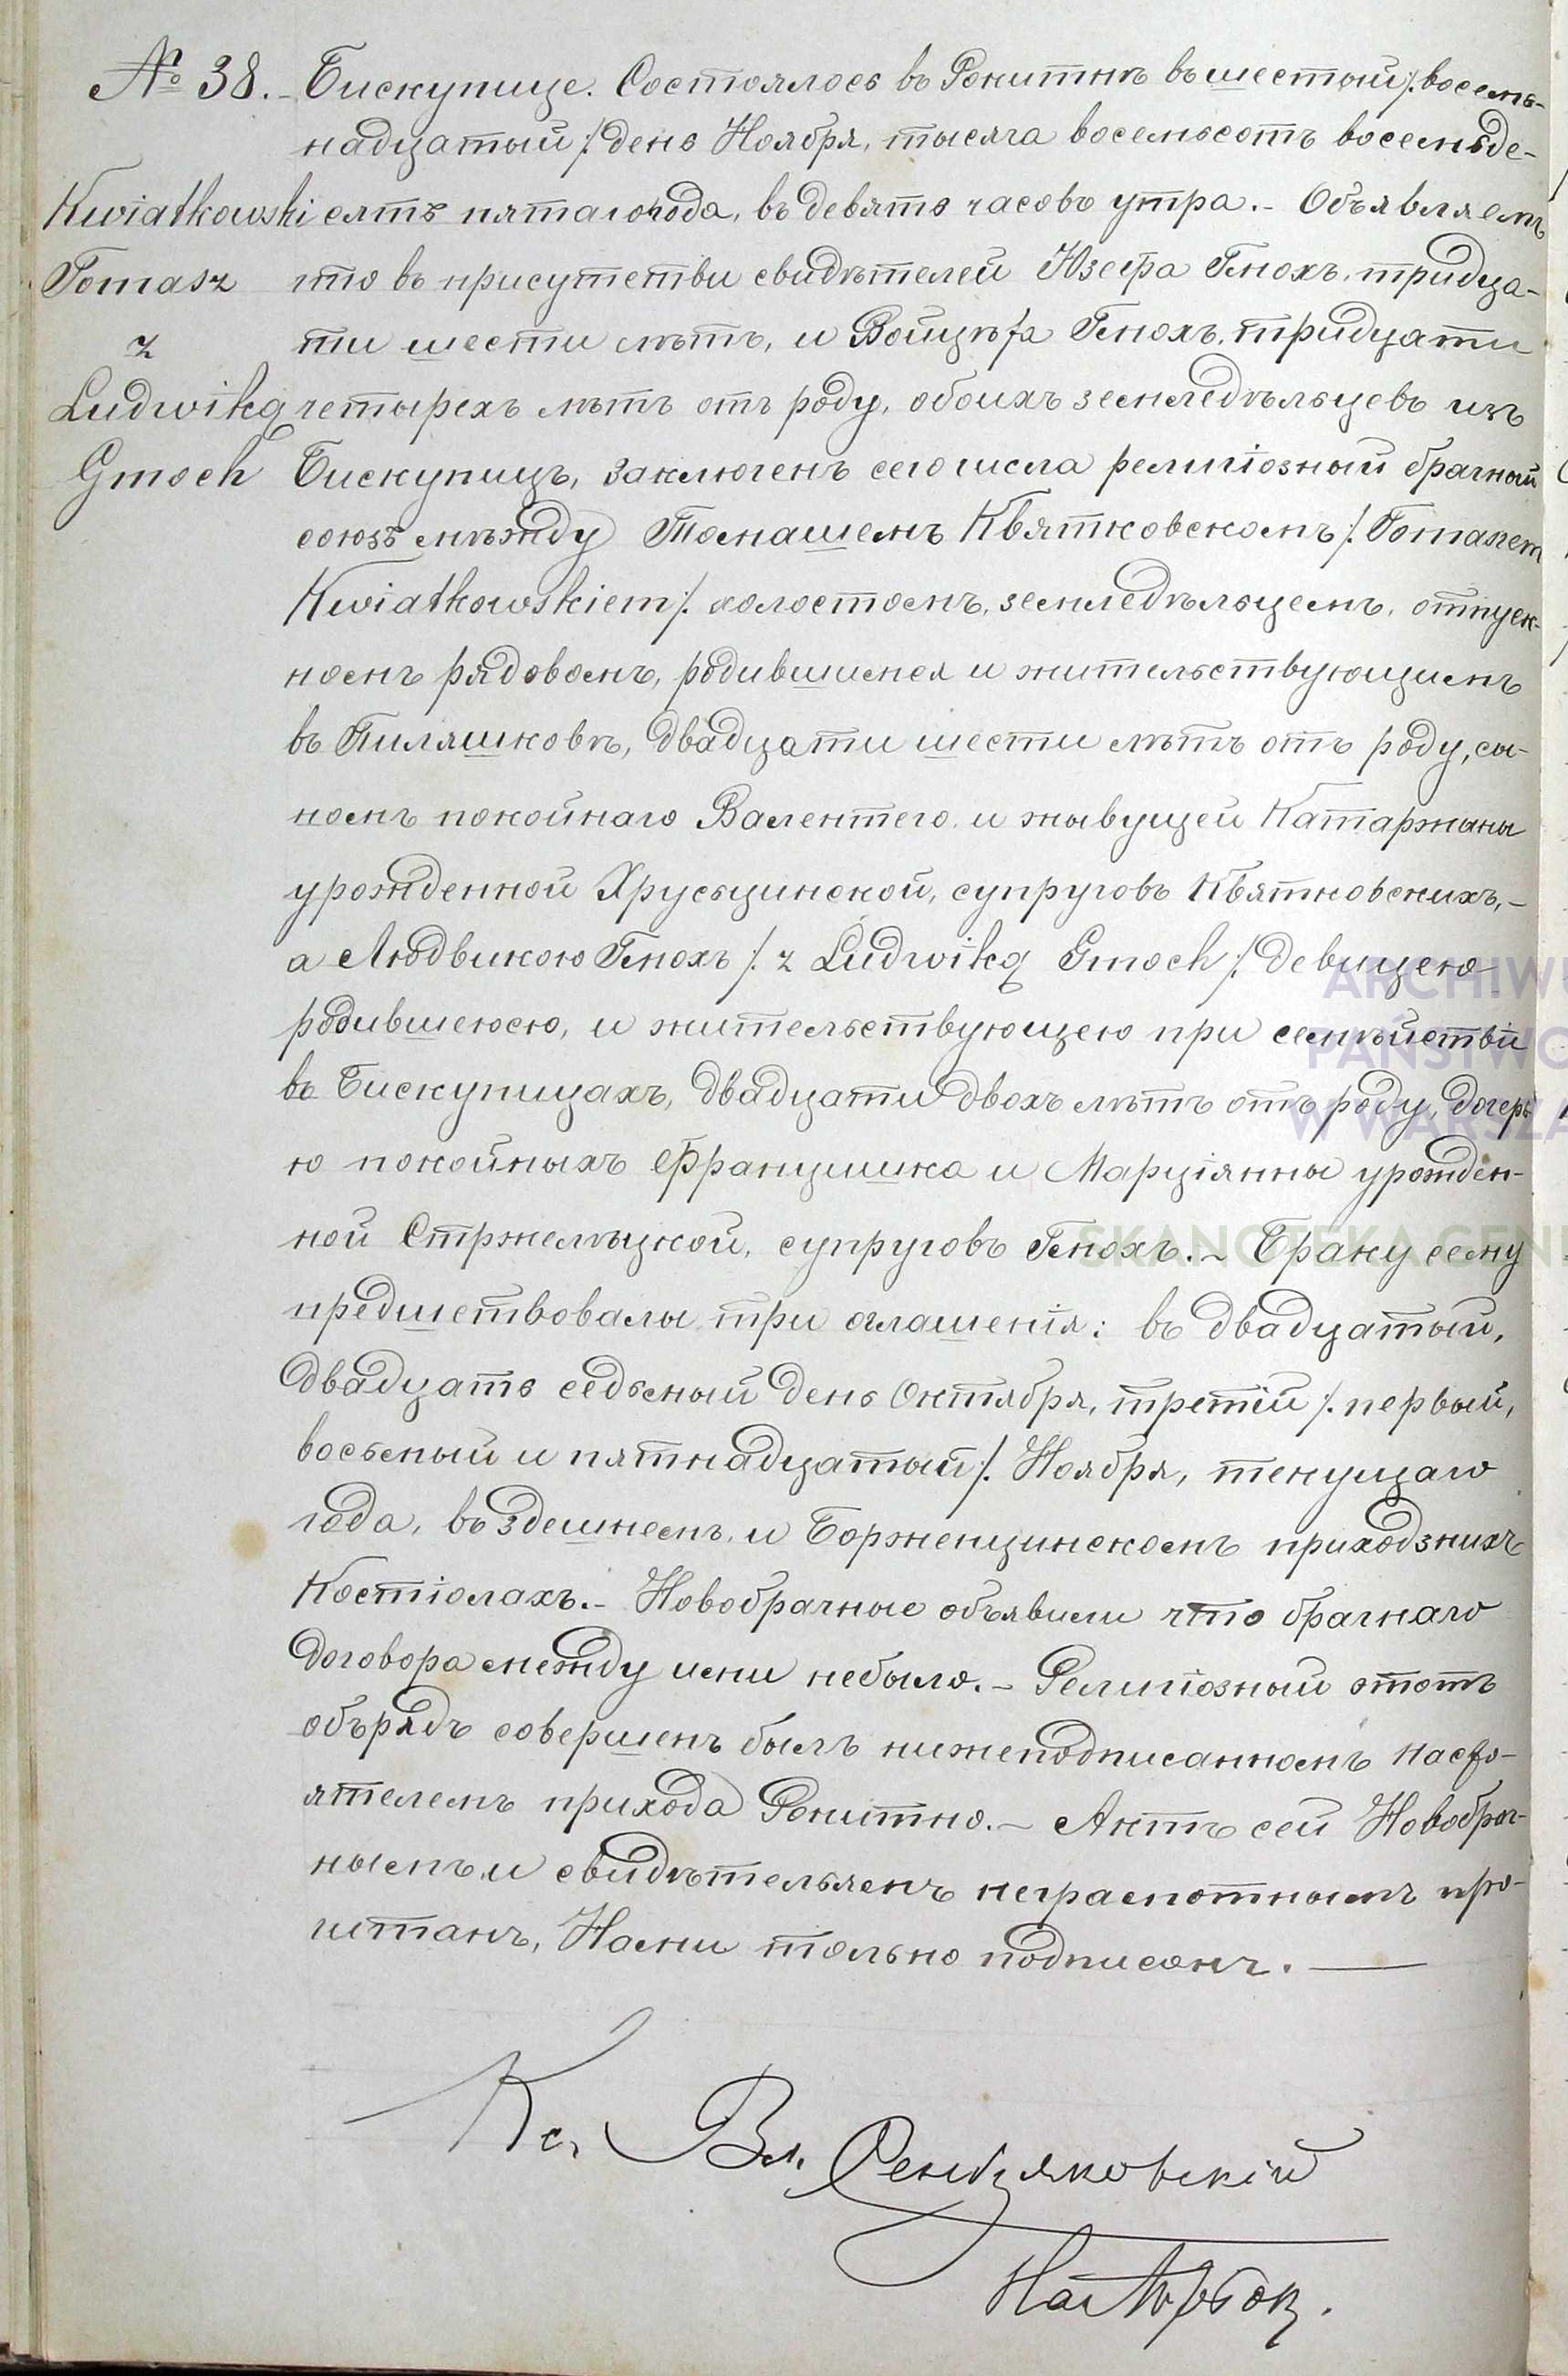 № 38. Бискупице. Состоялось въ Рокитнѣ въ шестый /: восемь-
надцатый /: день Ноября, тысяча восемьсотъ восемьде-
Kwiatkowski сятъ пятаго года, въ девять часовъ утра. - Объявляемъ
Tomasz что въ присутстви свидѣтелей Юзефа Гмохъ, тридца-
z ти шести лѣтъ, и Войцѣха Гмохъ, тридцати
Ludwiką четырехъ лѣтъ отъ роду, обоихъ земледѣльцевъ изъ
Gmoch Бискупицъ, заключенъ сего числа религіозный брачный
союзъ мѣжду Томашемъ Квятковскомъ /: Tomaszem
Kwiatkowskiem /: холостомъ, земледѣльцемъ, отпуск-
номъ рядовомъ, родившимся и жительствующимъ
въ Пиляшковѣ, двадцати шести лѣтъ отъ роду, сы-
номъ покойнаго Валентего и жывущей Катаржины
урожденной Хрусьцинской, супруговъ Квятковскихъ, -
а Людвикою Гмохъ /: z Ludwiką Gmoch /: девицею
родившеюсю, и жительствующею при семѣйстви
въ Бискупицахъ, двадцати двохъ лѣтъ отъ роду, дочерь
ю покойныхъ Францишка и Марціянны урожден-
ной Стржелѣцкой, супруговъ Гмохъ. - Браку сему
предшествовалы три оглашенія: въ двадцатый,
двадцать седьмый день Октября, третій /: первый,
восьмый и пятнадцатый /: Ноября, текущаго
года, въ здешнемъ и Борженцинскомъ приходзкихъ
Костіолахъ. - Новобрачные объявили что брачнаго
договора между ими небыло. - Религіозный этотъ
обърядъ совершенъ былъ нижеподписанномъ Насто-
ятелемъ прихода Рокитно. - Актъ сей Новобрач-
нымъ и свидѣтельямъ неграмотнымъ про-
читанъ, Нами только подписанъ. —
Кс. Вл.
ARCHIWU
PAŃSTWO
W WARSZA
SKANOTEKA GENE